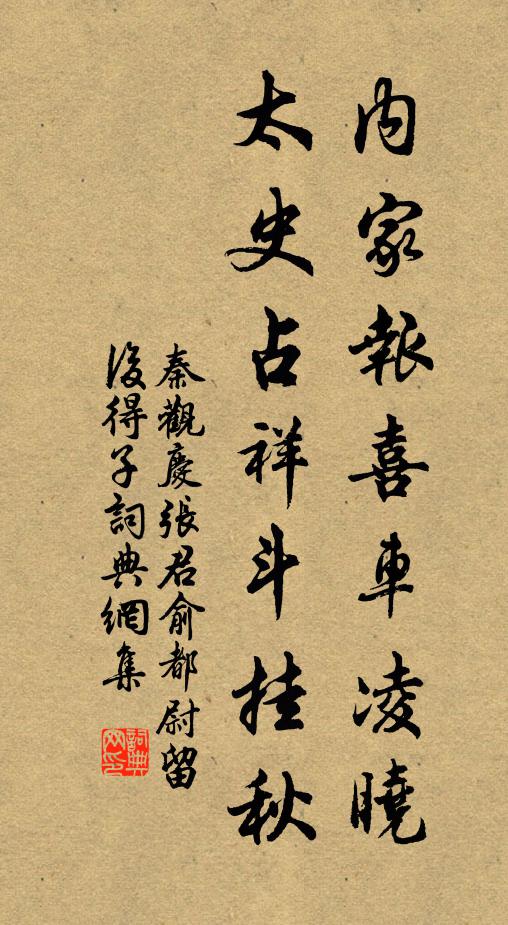 內家報喜車凌曉
太史占祥斗挂秋
秦觀慶張君俞都尉留
後得子詞典網集
詞典網印